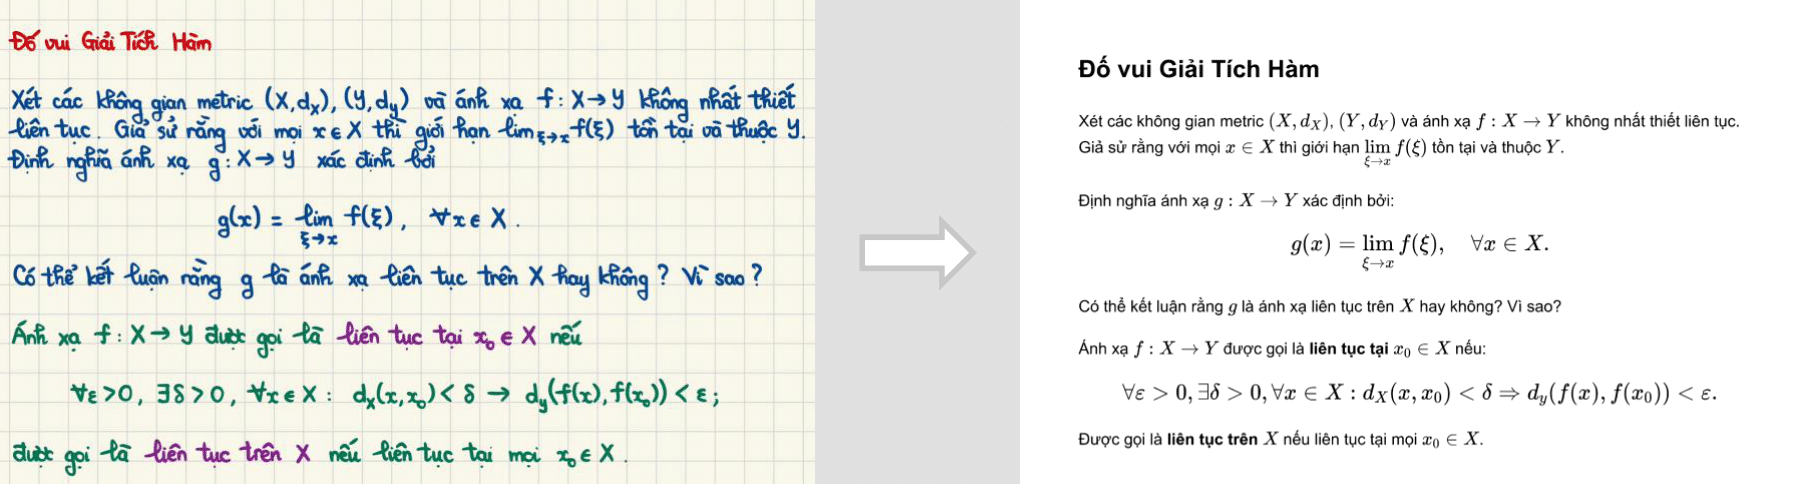 Đố vui Giải Tích Hàm
Xét các không gian metric (X,d_X), (Y,d_Y) và ánh xạ f: X → Y không nhất thiết
liên tục. Giả sử rằng với mọi x ∈ X thì giới hạn lim_{ξ→x} f(ξ) tồn tại và thuộc Y.
Định nghĩa ánh xạ g: X → Y xác định bởi
g(x) = lim_{ξ→x} f(ξ), ∀x ∈ X.
Có thể kết luận rằng g là ánh xạ liên tục trên X hay không? Vì sao?
Ánh xạ f: X → Y được gọi là liên tục tại x₀ ∈ X nếu
∀ε > 0, ∃δ > 0, ∀x ∈ X: d_X(x,x₀) < δ → d_Y(f(x), f(x₀)) < ε;
được gọi là liên tục trên X nếu liên tục tại mọi x₀ ∈ X.
Đố vui Giải Tích Hàm
Xét các không gian metric (X, d_X), (Y, d_Y) và ánh xạ f : X → Y không nhất thiết liên tục.
Giả sử rằng với mọi x ∈ X thì giới hạn lim_{ξ→x} f(ξ) tồn tại và thuộc Y.
Định nghĩa ánh xạ g : X → Y xác định bởi:
g(x) = lim_{ξ→x} f(ξ), ∀x ∈ X.
Có thể kết luận rằng g là ánh xạ liên tục trên X hay không? Vì sao?
Ánh xạ f : X → Y được gọi là liên tục tại x₀ ∈ X nếu:
∀ε > 0, ∃δ > 0, ∀x ∈ X : d_X(x, x₀) < δ ⇒ d_y(f(x), f(x₀)) < ε.
Được gọi là liên tục trên X nếu liên tục tại mọi x₀ ∈ X.